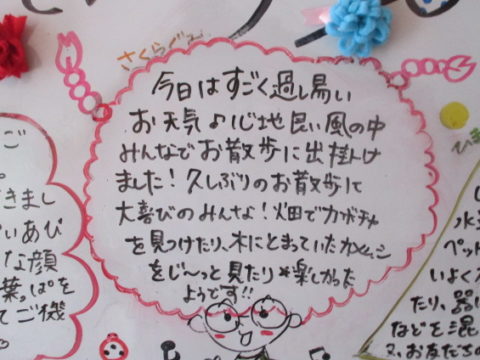 さくらぐみ
今日はすごく過し易い
お天気♪心地良い風の中
みんなでお散歩に出掛け
ました!久しぶりのお散歩に
大喜びのみんな!畑でカボチャ
を見つけたり、木にとまっていたカメムシ
をじ〜っと見たり*楽しかった
ようです!!
ご
。
きまし
いあび
な顔
葉っぱを
てご機
。
ひま
水
ペット
いよく
たり、器
などを混
又、お友だちの